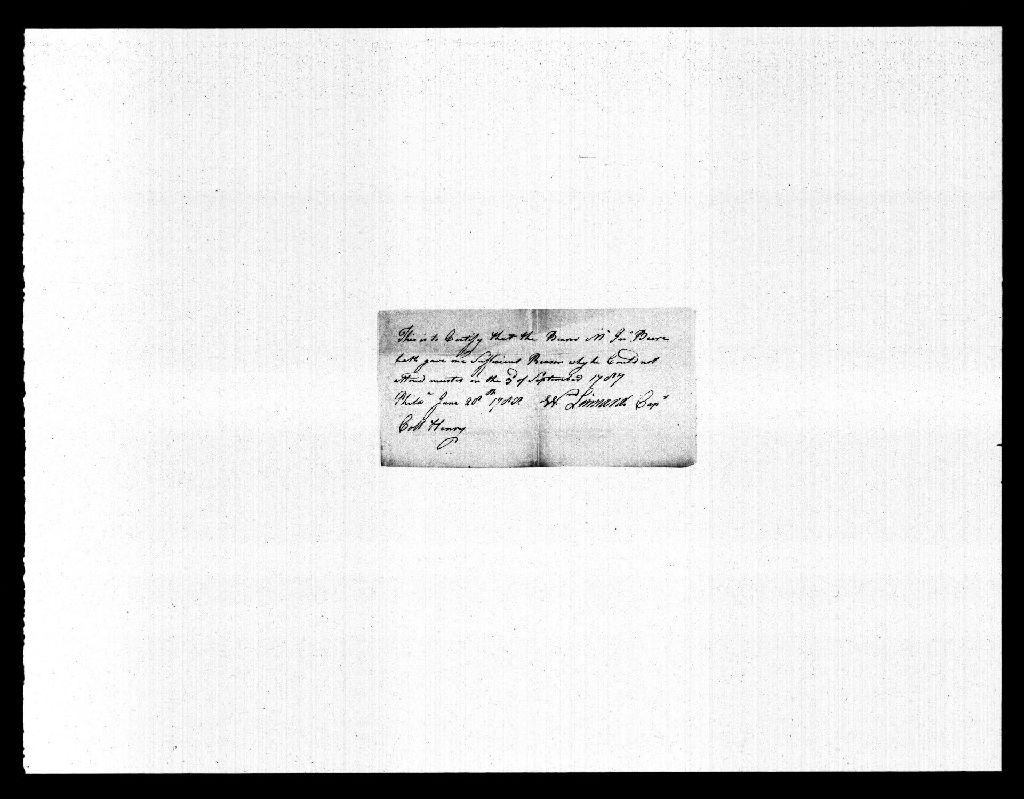 This is to Certify that the Bearer Mr Jno Beere
hath gave me Sufficient Reason why he Could not
Attend muster on the 3d of September 1787
Philada June 28th 1788 Wm Simonds Capt
Coll Henry